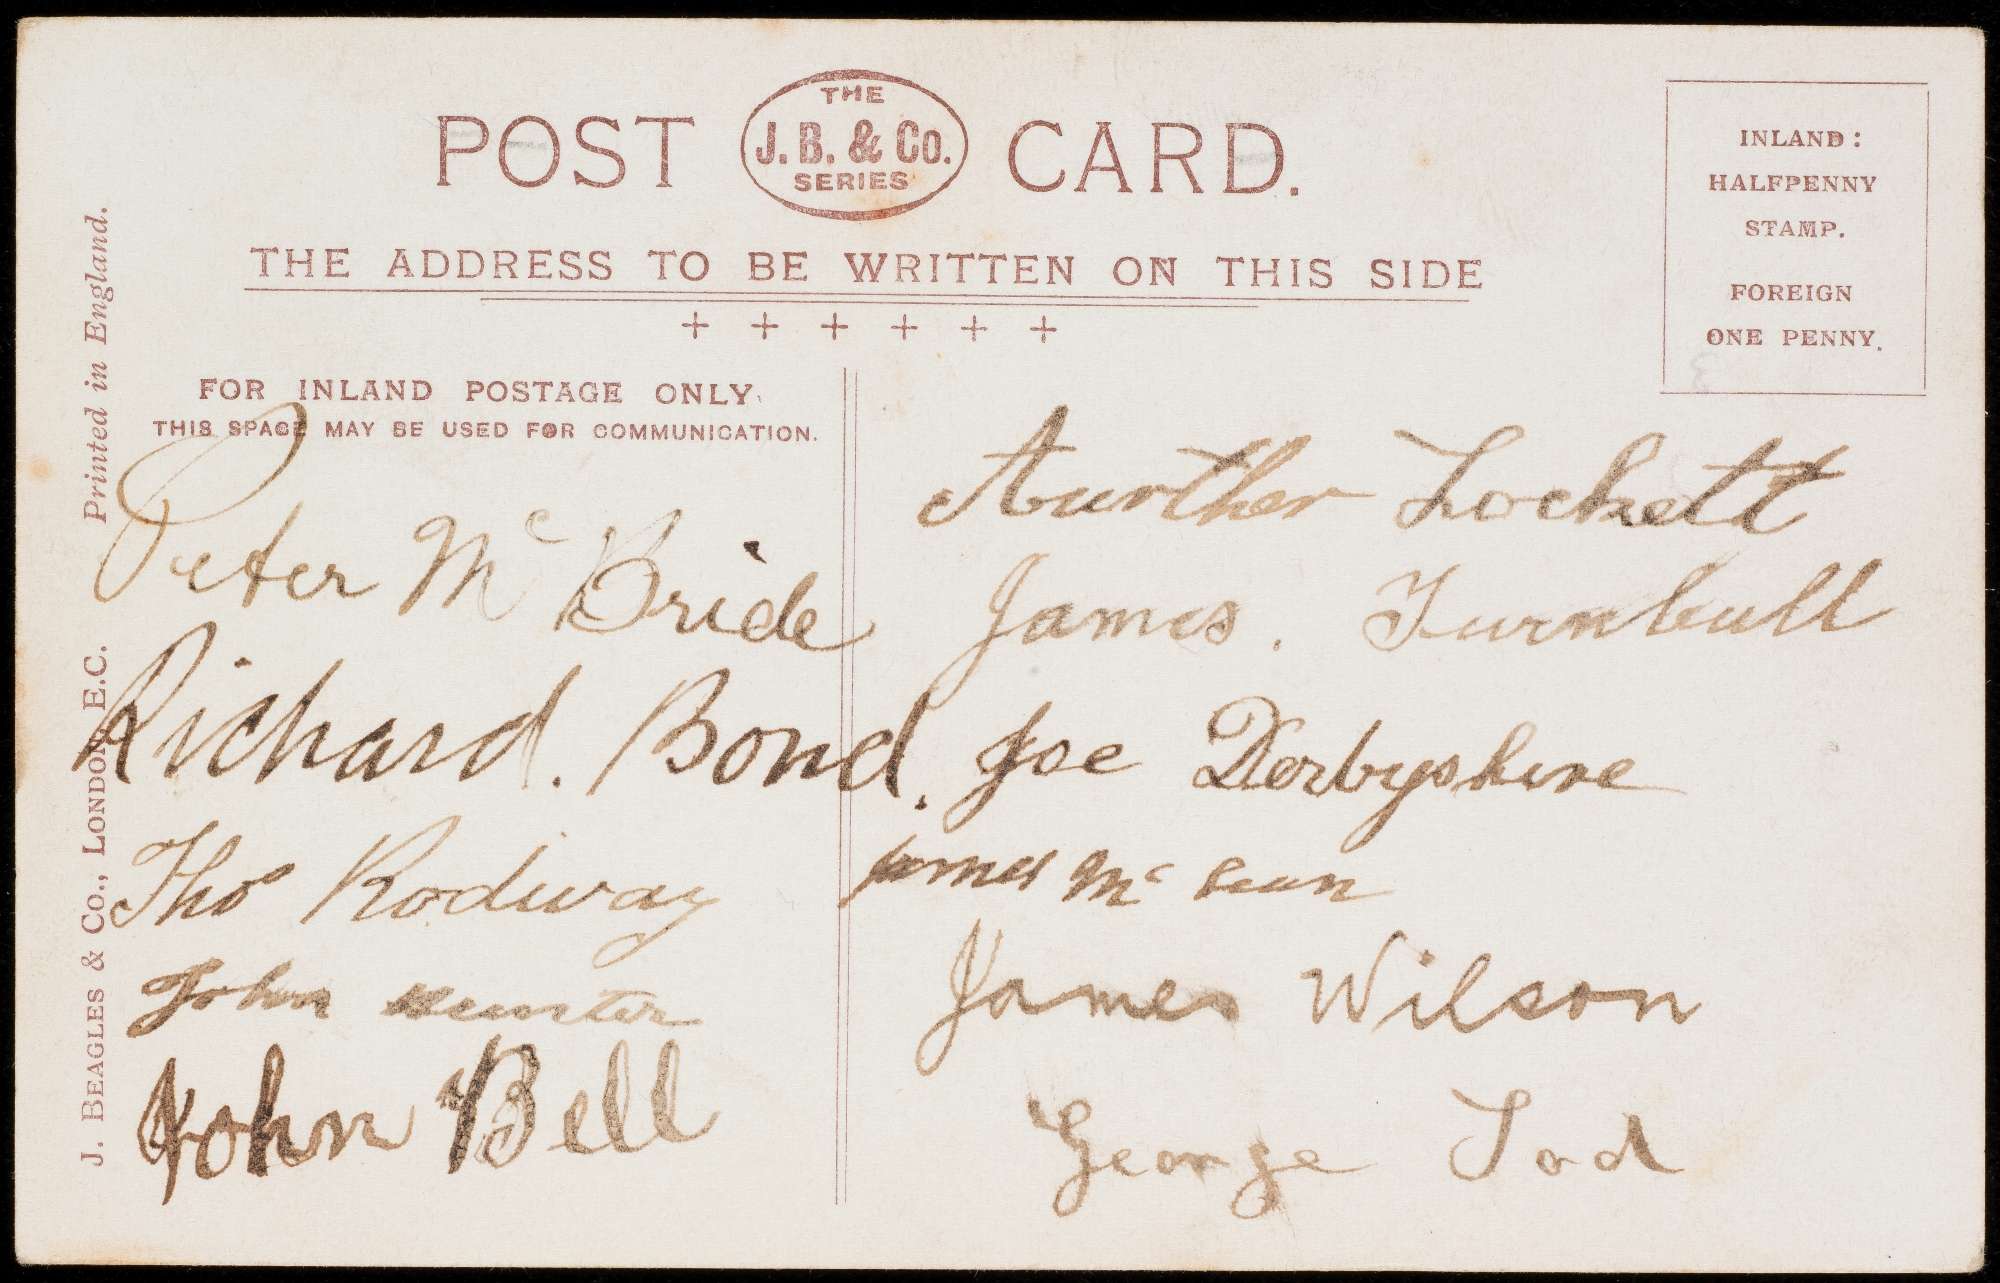 POST THE J. B. & Co. SERIES CARD.
THE ADDRESS TO BE WRITTEN ON THIS SIDE
INLAND:
HALFPENNY
STAMP.
FOREIGN
ONE PENNY.
FOR INLAND POSTAGE ONLY.
THIS SPACE MAY BE USED FOR COMMUNICATION.
J. BEAGLES & Co., LONDON, E.C. Printed in England.
Peter Mc Bride
Richard. Bond.
Tho⁠s Rodway
John Hunter
John Bell
Aurther Lockett
James. Turnbull
Joe Derbyshire
James Mc
James Wilson
George Tod